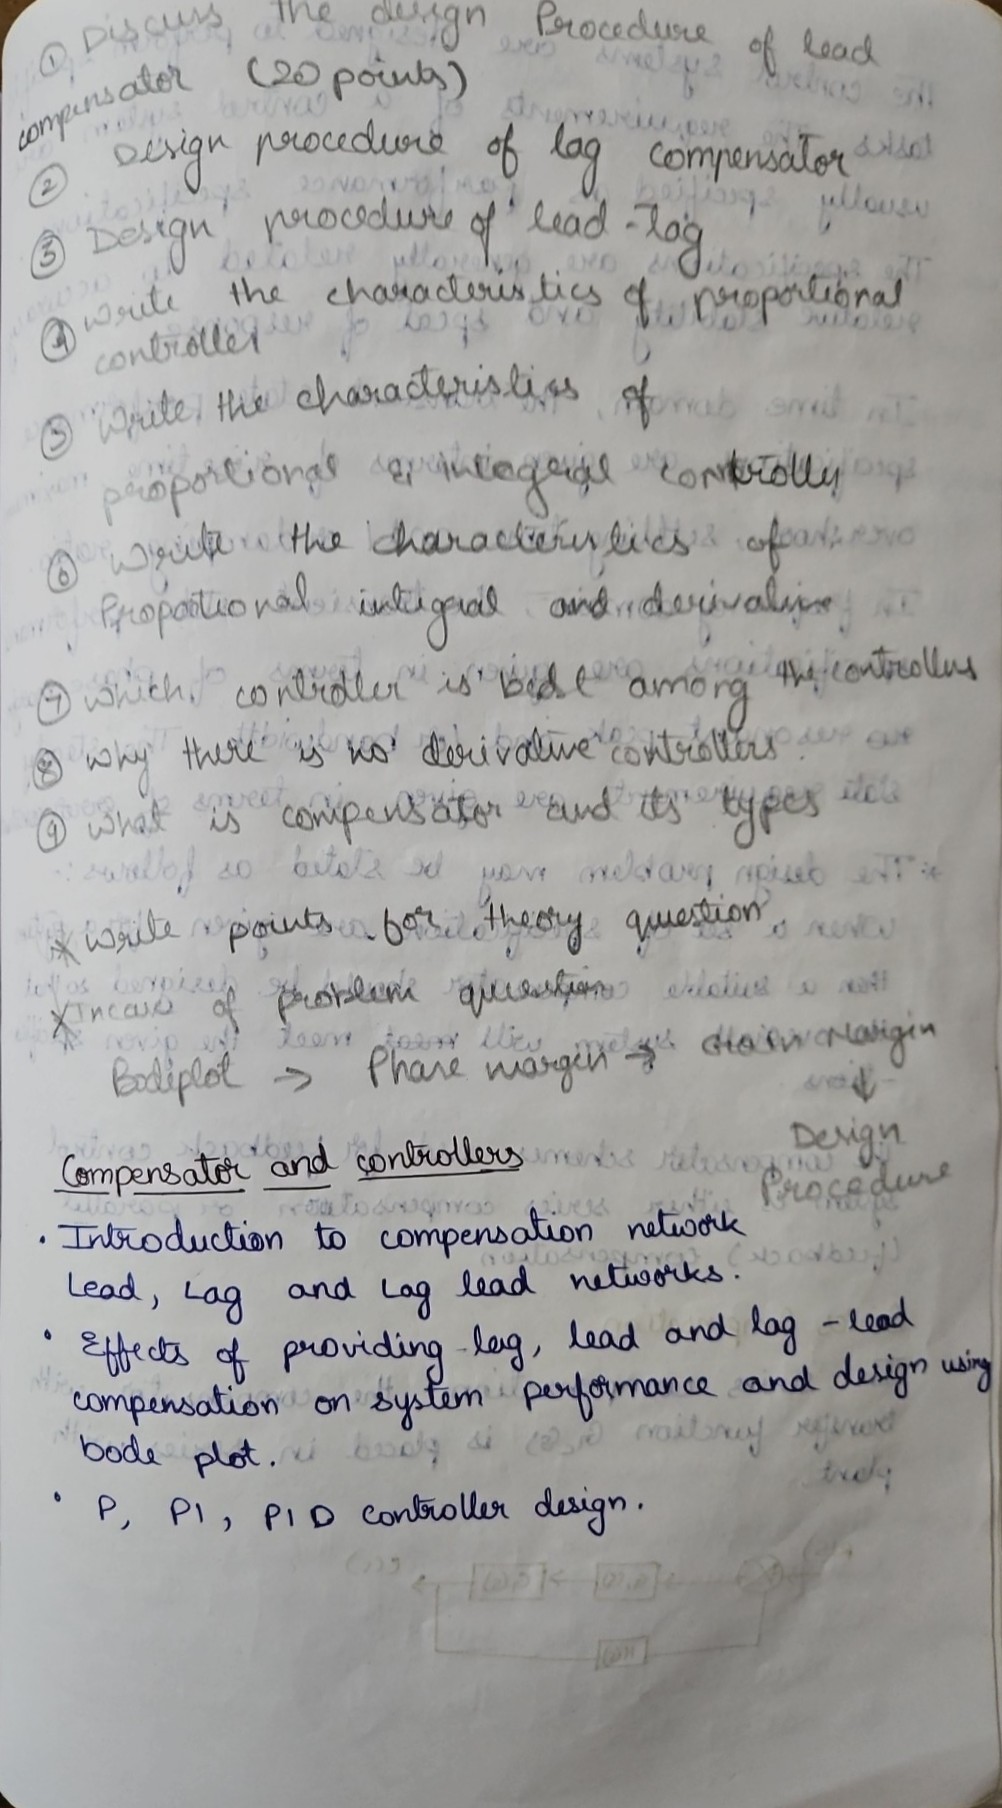 ① Discuss the design Procedure of lead
compensator (20 points)
② Design procedure of lag compensator
③ Design procedure of lead-lag
④ write the characteristics of proportional
controller
⑤ Write the characteristics of
proportional & integral controlly
⑥ Write the characteristics of
Proportional integral and derivative
⑦ which controller is best among the controllers
⑧ why there is no derivative controllers.
⑨ what is compensator and its types
* write points for theory question
* Incase of problem question
Bodeplot → Phase margin → Gain Margin
↓
Design
Procedure
Compensator and controllers
• Introduction to compensation network
Lead, Lag and Lag lead networks.
• Effects of providing lag, lead and lag - lead
compensation on system performance and design using
bode plot.
• P, PI, PID controller design.